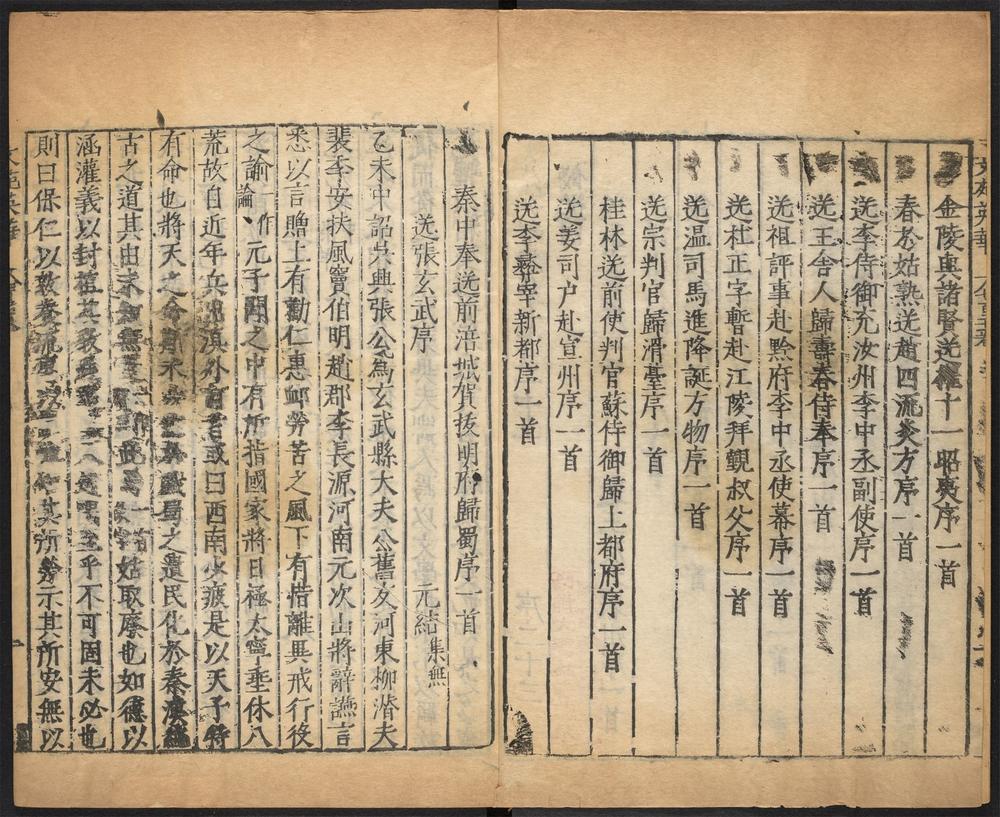 金陵與諸賢送權十一昭夷序一首
春於姑熟送趙四流炎方序一首
送李侍御充汝州李中丞副使序一首
送王舍人歸壽春侍奉序一首
送祖評事赴黔府李中丞使幕序一首
送杜正字暫赴江陵拜覲叔父序一首
送温司馬進降誕方物序一首
送宗判官歸滑臺序一首
桂林送前使判官蘇侍御歸上都府序一首
送姜司户赴宣州序一首
送李彝宰新都序一首
秦中奉送前涪城賀拔明府歸蜀序一首
送張玄武序 元結 集無
乙未中詔吳興張公爲玄武縣大夫公舊友河東柳潜夫
裴季安扶風竇伯明趙郡李長源河南元次山將辭讌言
悉以言贈上有勸仁惠卹勞苦之風下有惜離異戒行役
之諭 作論 元子聞之中有所指國家將日極太寧垂休八
荒故自近年兵 滇外 或曰西南少疲是以天子特
有命也將天之命斯未 蜀之遺民化於秦漢
古之道其由未 無 姑取廢也如德以
涵灌義以封植 乎不可固未必也
則曰保仁以敦養流 其所勞示其所安無以